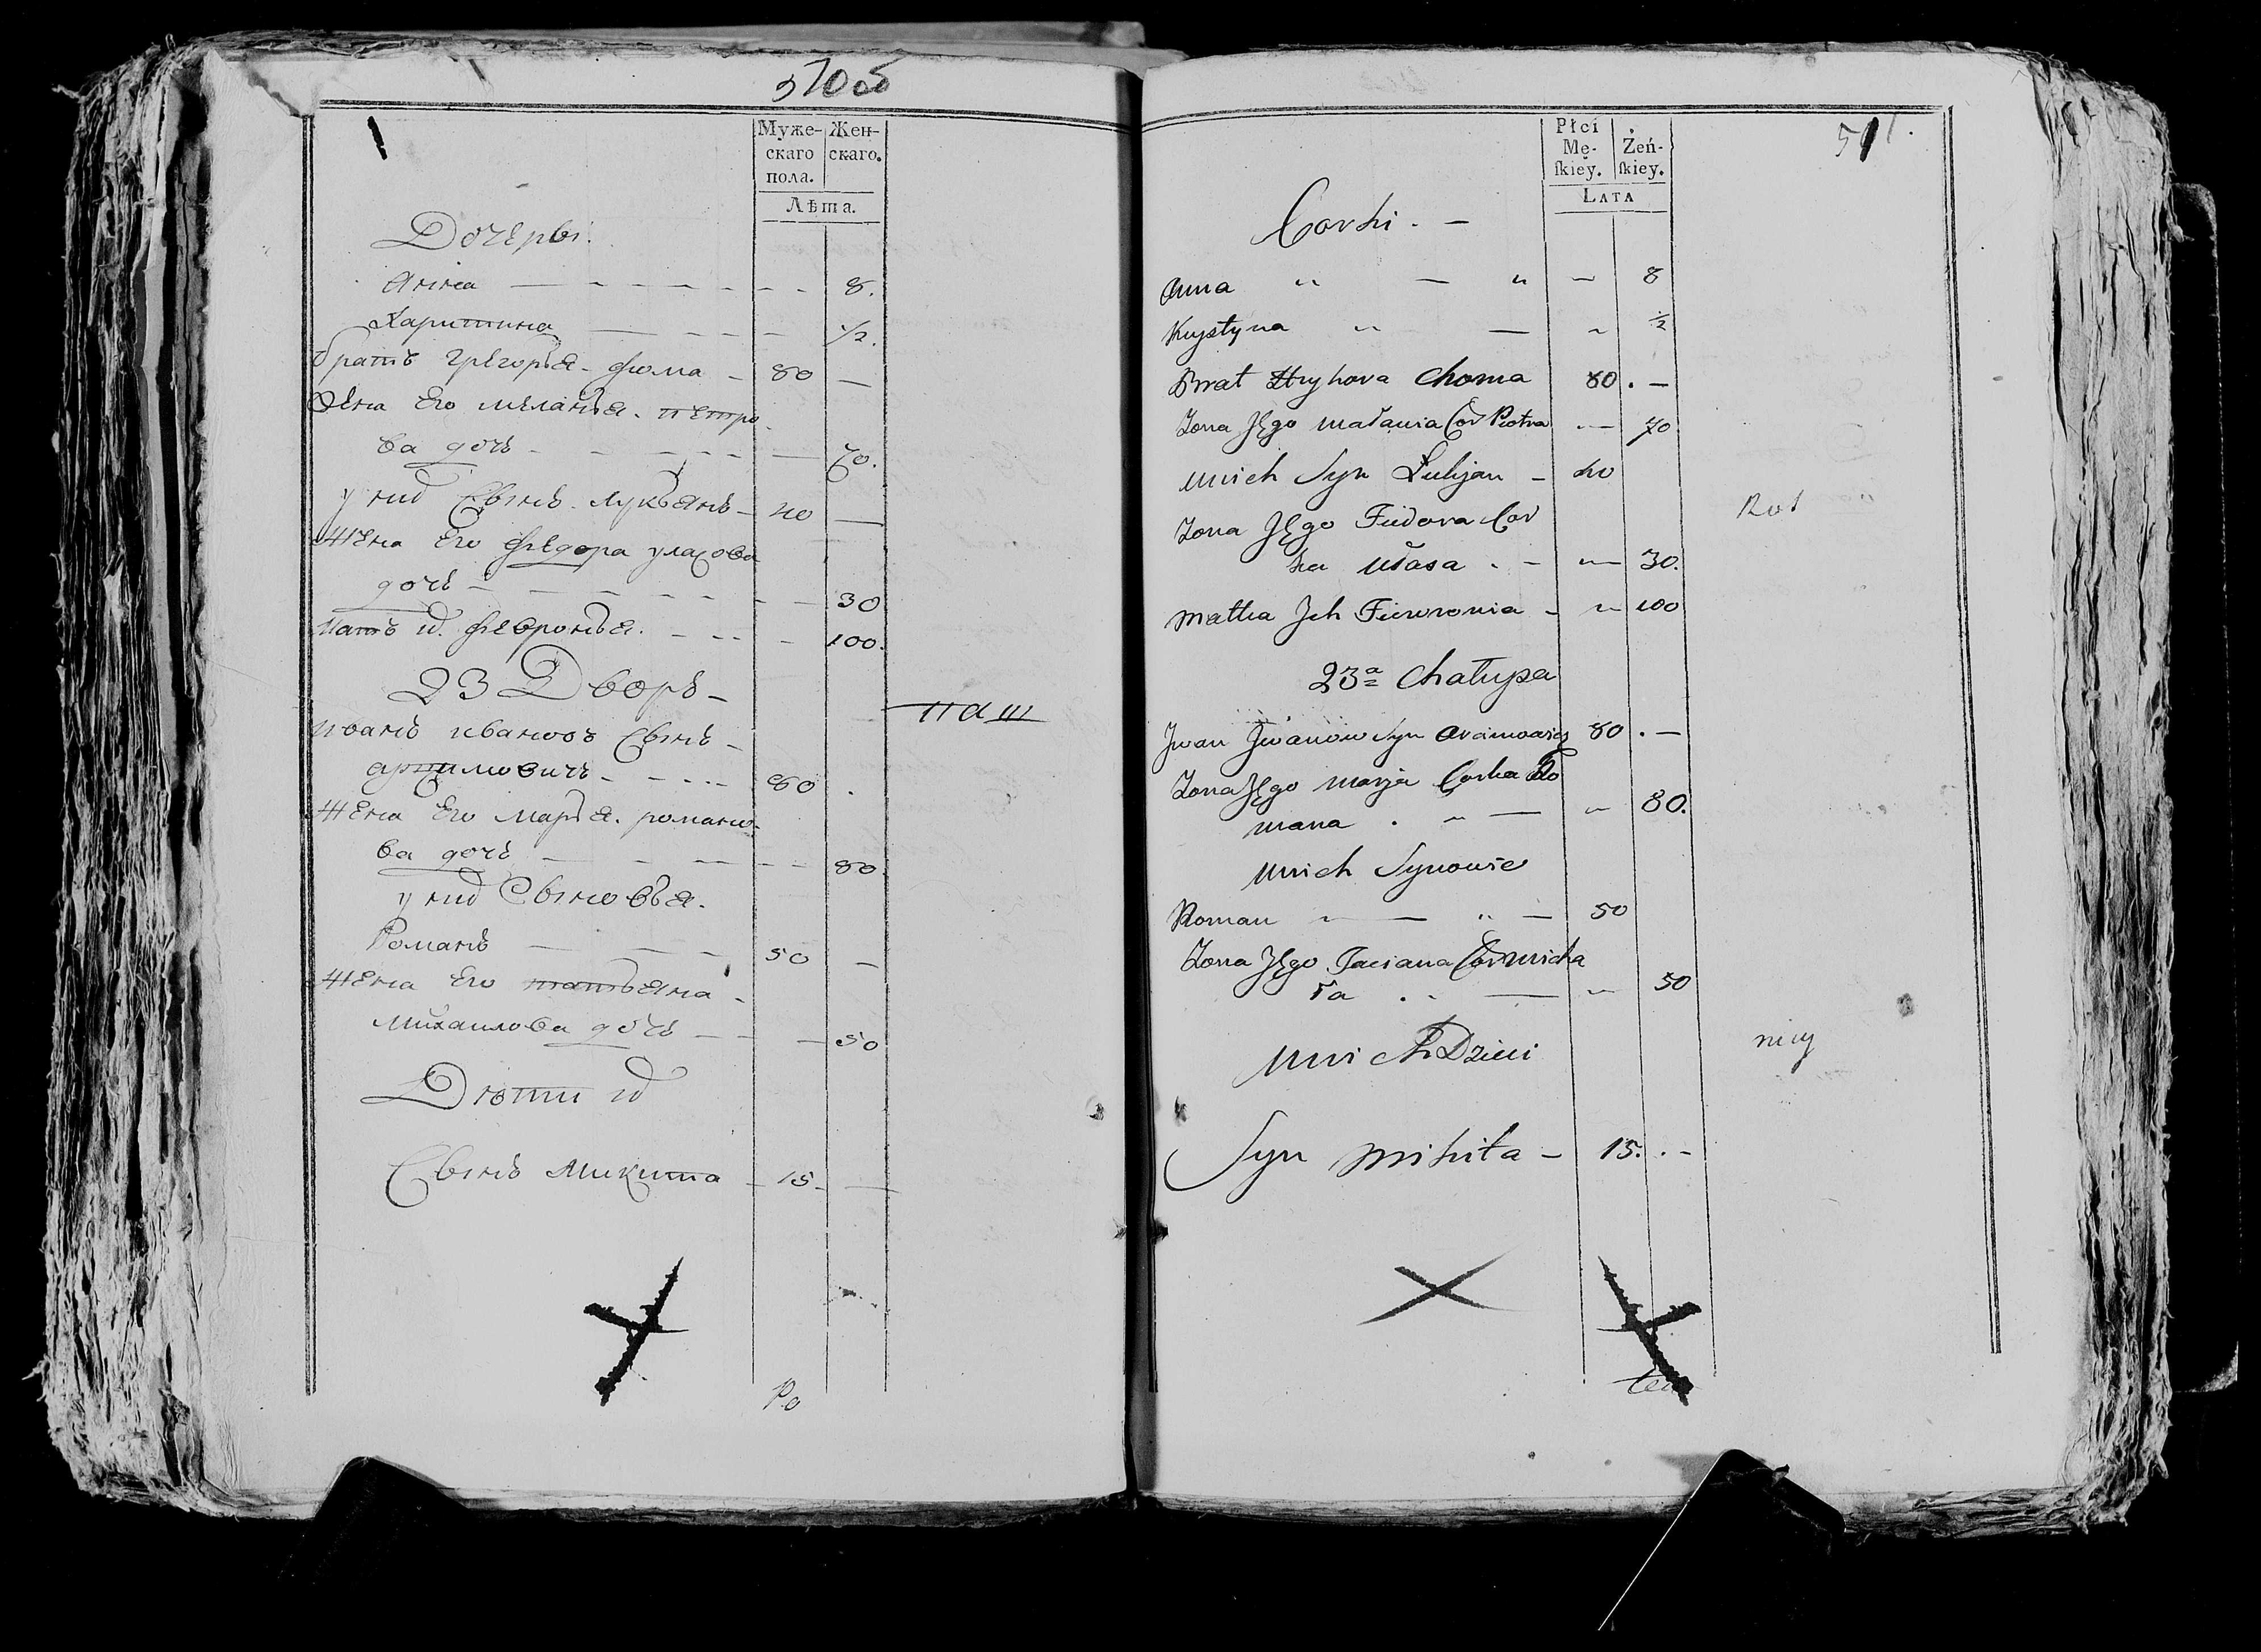 570об
Муже-
скаго
пола.
Жен-
скаго.
Лѣта.
Дочеры.
Анна — 8.
Харитина — 1/2.
братъ григорья фома — 80 —
жена Его меланья. петро
ва дочь — 70.
у них Сынъ Лукьянъ — 40 —
Жена Его федора уласова
дочь — 30
Мать их февронья. — 100.
23 Дворъ —
Иванъ ивановъ Сынъ —
80 .
Жена Его Марья. романо-
ва дочь — 80.
у них Сыновья.
Романъ — 50 —
Жена Его татьяна -
Михаилова дочь — 50
Дѣти их
Сынъ Микита — 15 —
Ро
Płci
Mę-
ſkiey.
Żeń-
ſkiey.
LATA
Corki . —
Anna „ — „ — 8
Krystyna „ — „ 1/2
Brat Hryhora Choma 80 . —
Zona Jego Małania Cor Piotra — 70
unich Syn Lukjan — 40
Zona Jego Fiedora Cor
ka Ułasa . — — 30.
Matka Jch Fiewronia — „ 100
23a Chałupa
Jwan Jwanow Syn 80 . —
Zona Jego Marja Corka Ro
mana . „ — „ 80.
unich Synowie
Roman „ — „ — 50
Zona Jego Taciana Cor Micha
ła . „ — „ 50
unich Dzieci
Syn Mikita — 15. . -